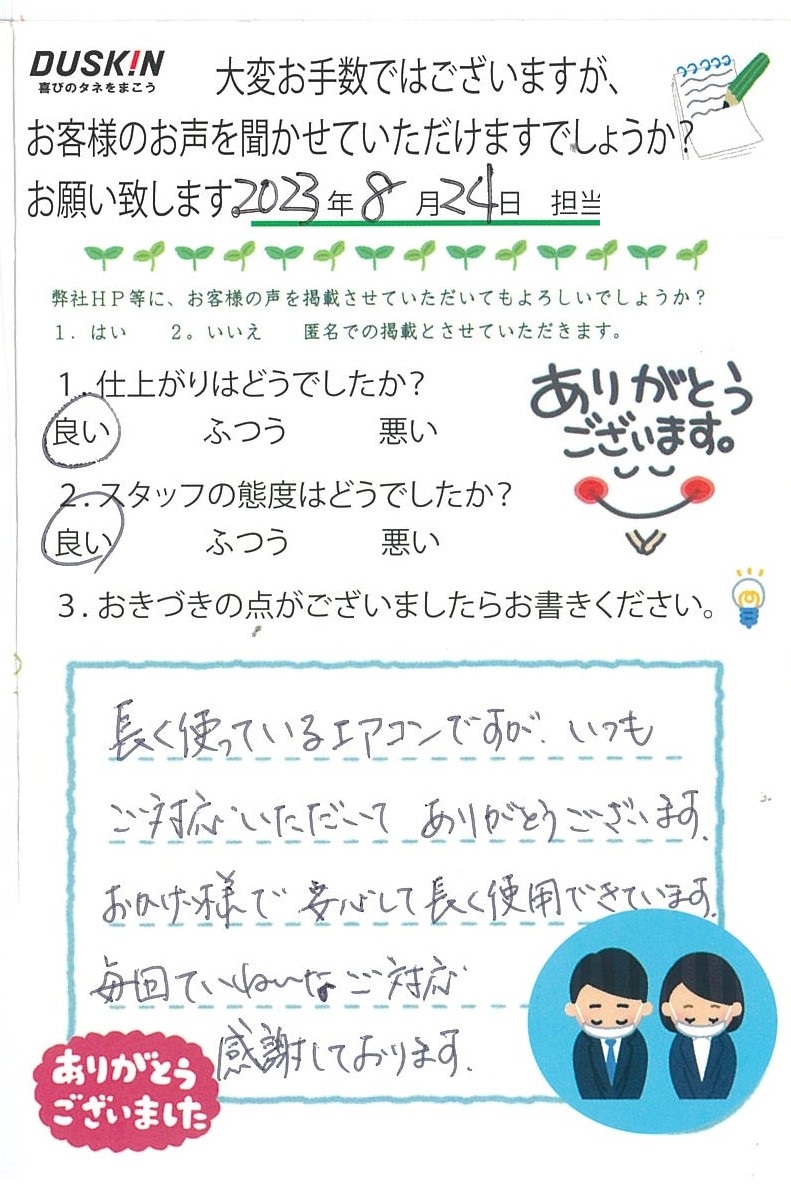 DUSK!N
喜びのタネをまこう
大変お手数ではございますが、
お客様のお声を聞かせていただけますでしょうか?
お願い致します。2023年8月24日 担当
弊社HP等に、お客様の声を掲載させていただいてもよろしいでしょうか?
1. はい 2。いいえ 匿名での掲載とさせていただきます。
1.仕上がりはどうでしたか?
良い ふつう 悪い
ありがとう
ございます。
2.スタッフの態度はどうでしたか?
良い ふつう 悪い
3.おきづきの点がございましたらお書きください。
長く使っているエアコンですが、いつも
ご対応いただいて ありがとうございます。
おかげ様で 安心して長く使用できています。
毎回ていねいなご対応
感謝しております。
ありがとう
ございました